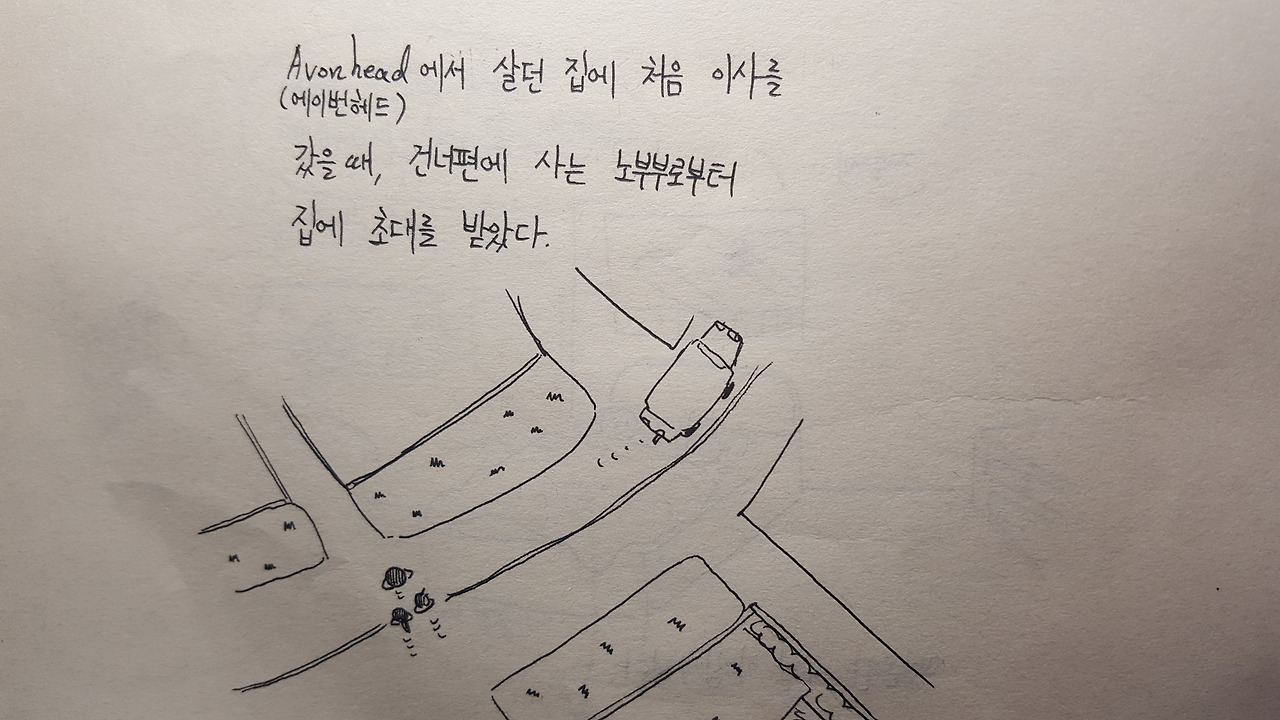 Avonhead에서 살던 집에 처음 이사를
(에이번헤드)
갔을 때, 건너편에 사는 노부부로부터
집에 초대를 받았다.